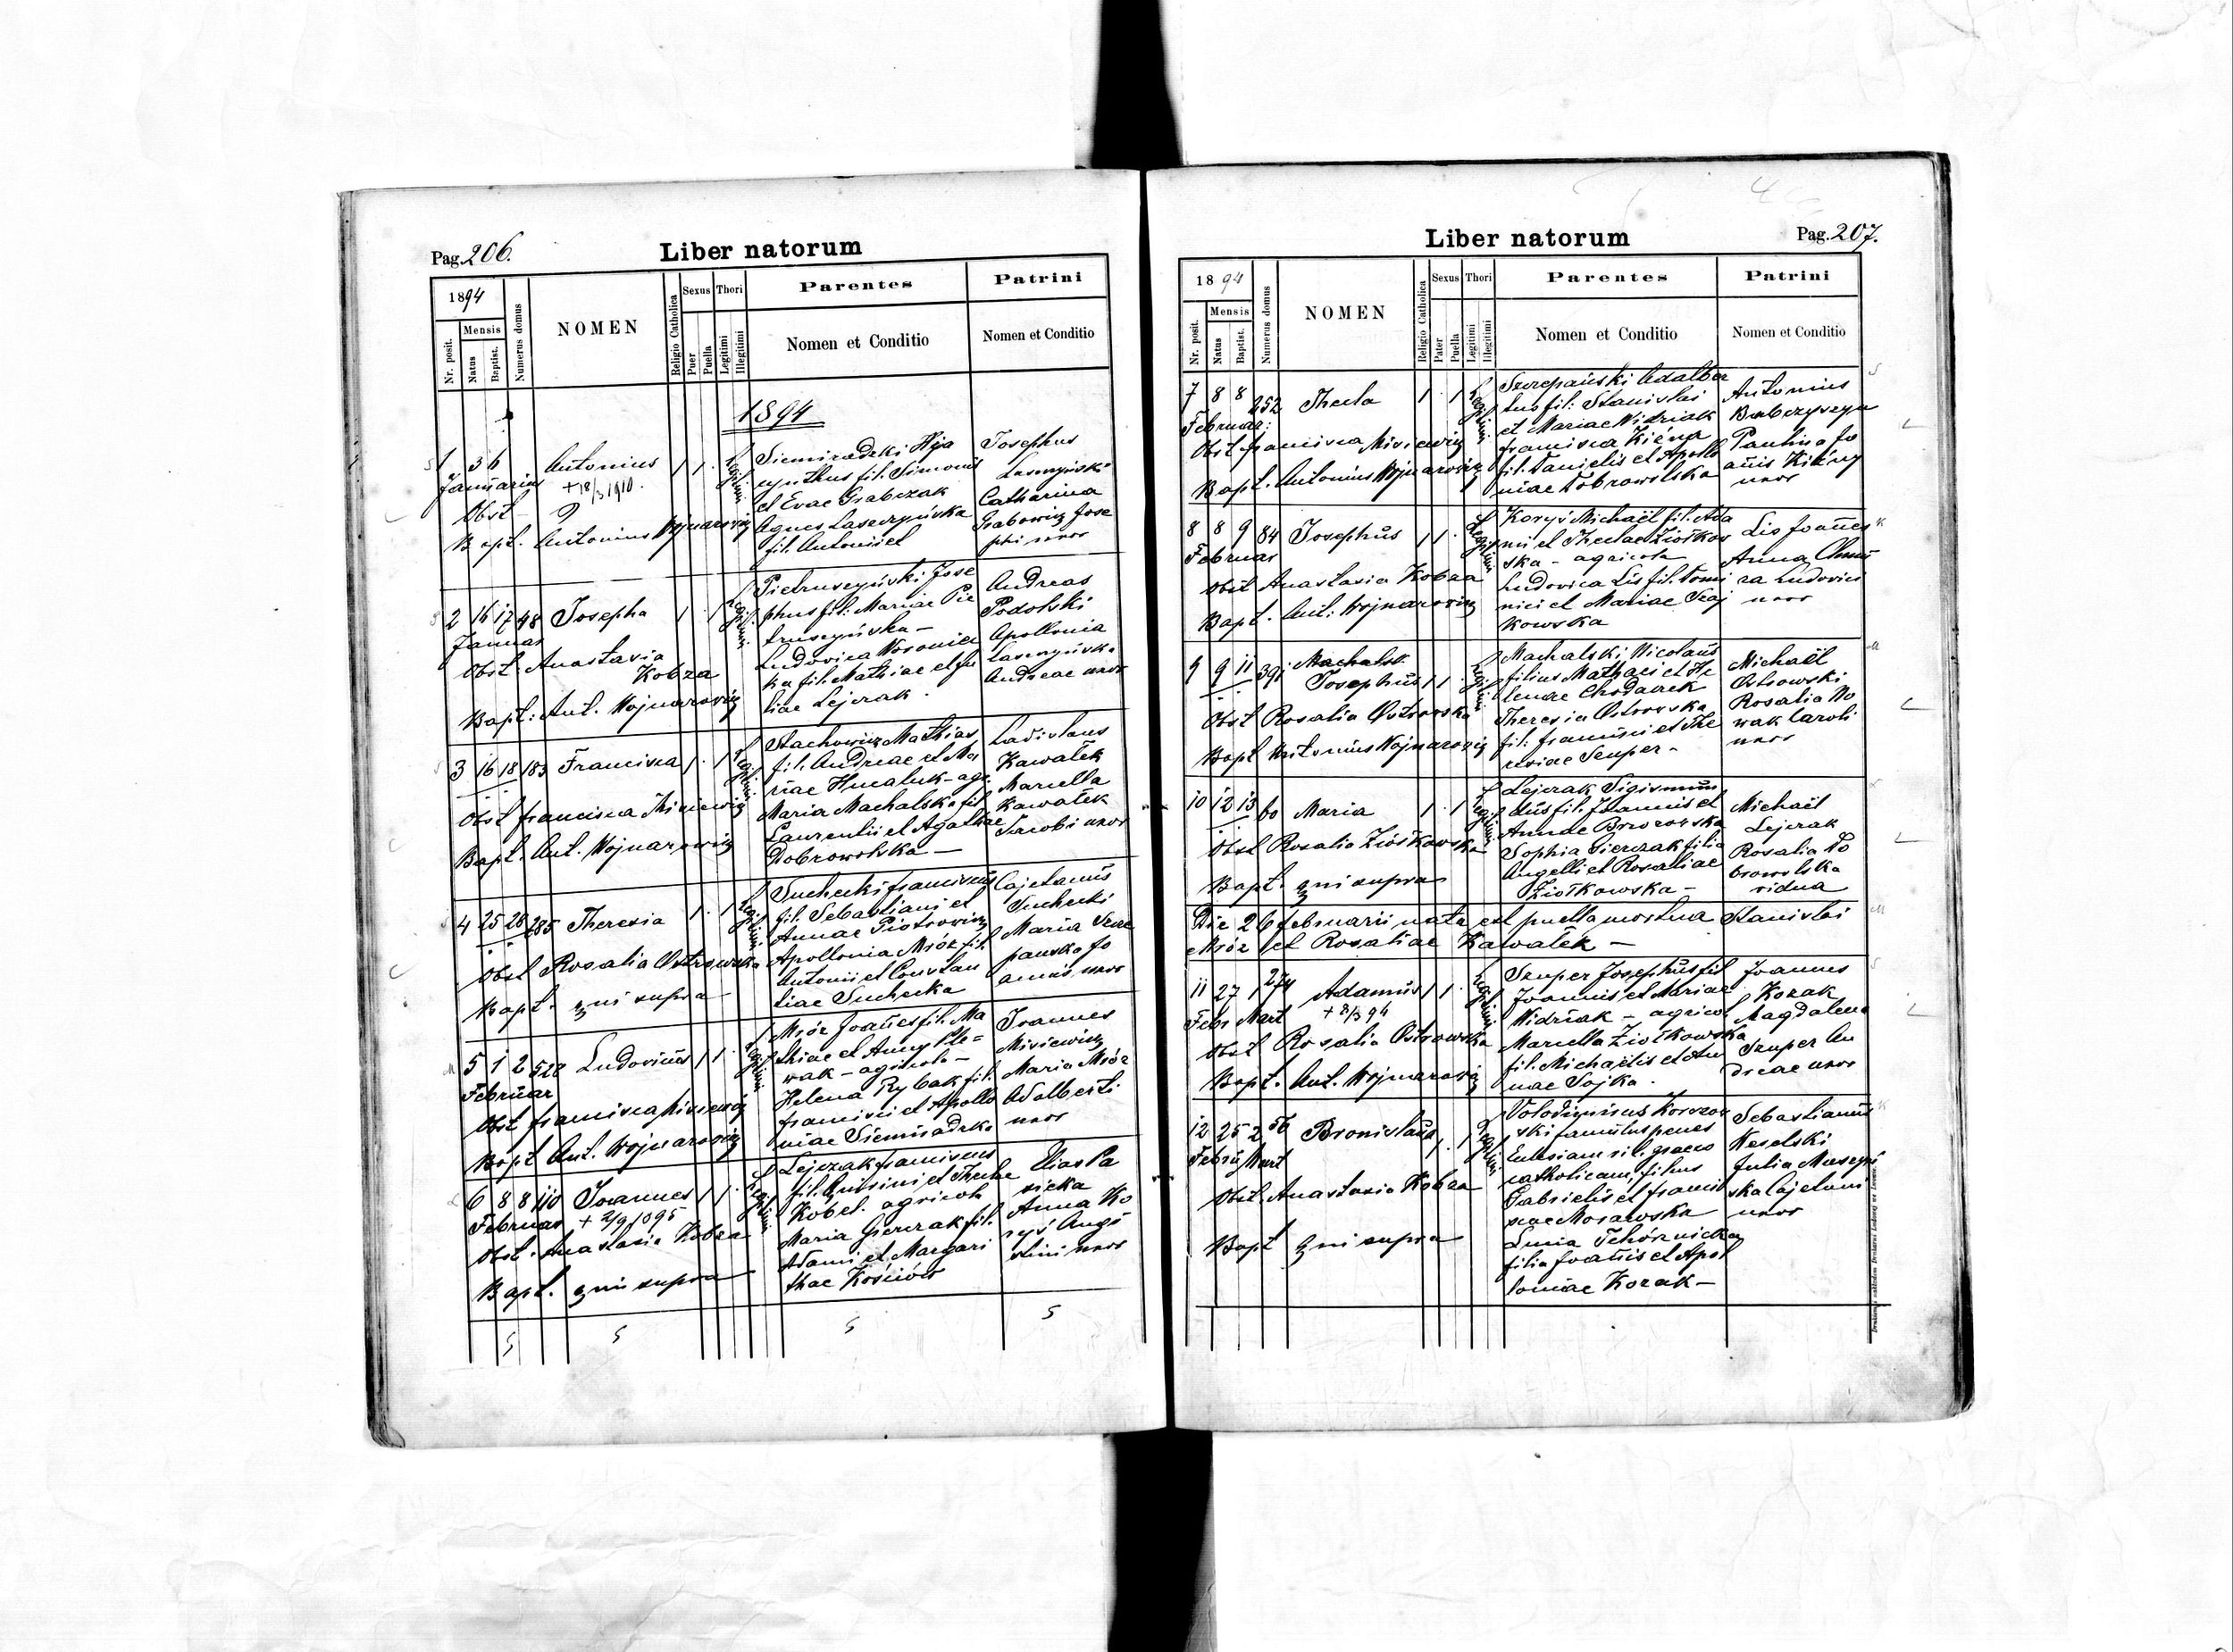 Pag. 206.
Liber natorum
1894
Nr. posit.
Mensis
Natus
Baptist.
Numerus domus
NOMEN
Religio Catholica
Sexus
Puer
Puella
Thori
Legitimi
Illegitimi
Parentes
Nomen et Conditio
Patrini
Nomen et Conditio
1894
1 3 6 Antonius 1 1
Januarius + 18/3 1910.
Obst – ?
Bapt. Antonius Wojnarowicz
Siemiradzki Hya
cynthus fil. Simonis
et Evae Grabczak
Agnes
fil. Antonii et
Josephus
Catharina
Grabowicz Jose
phi uxor
2 16 17 48 Josepha 1 1
Januar
Obst Anastasia
Kobza
Bapt: Ant. Wojnarowicz
Pietruszyński Jose
phus fil. Mariae Pie
truszyńska –
Ludovica
ka fil. Mathiae et Ju
liae Lejczak
Andreas
Podolski
Apollonia
Andreae uxor
3 16 18 183 Francisca 1 1
Obst Francisca
Bapt. Ant. Wojnarowicz
Stachowicz Mathias
fil. Andreae et Ma
riae – agr.
Maria Machalska fil.
Laurentii et Agathae
Dobrowolska –
Ladislaus
Kawałek
Mariella
Kawałek
Jacobi uxor
4 25 28 285 Theresia 1 1
Obst Rosalia Ostrowska
Bapt. qui supra
Suchecki Franciscus
fil. Sebastiani et
Annae Piotrowicz
Apollonia Mróz fil.
Antonii et Constan
tiae Suchecka
Cajetanus
Suchecki
Maria Szcze
pańska Jo
annis uxor
5 1 2 522 Ludovicus 1 1
Februar
Obst Francisca Misiewicz
Bapt Ant. Wojnarowicz
Mróz Joañes fil. Ma
thiae et Annae Ple=
wak – agricola –
Helena Rybak fil.
Francisci et Apollo
niae Siemiradzka
Joannes
Misiewicz
Maria Mróz
Adalberti
uxor
6 8 8 110 Joannes 1 1
Februar + 2/9 1095
Obst. Anastasia Kobza
Bapt. qui supra
Lejczak Franciscus
fil. et Theclae
Kobel. agricola
Maria Gierczak fil.
Adami et Margari
thae Kościów
Elias Pa
sieka
Anna Ko
ryś Augu
stini uxor
Pag. 207.
Liber natorum
1894
Nr. posit.
Mensis
Natus
Baptist.
Numerus domus
NOMEN
Religio Catholica
Sexus
Pater
Puella
Thori
Legitimi
Illegitimi
Parentes
Nomen et Conditio
Patrini
Nomen et Conditio
7 8 8 252 Thecla 1 1
Februar:
Obst Francisca Misiewicz
Bapt. Antonius Wojnarowicz
Szczepański Adalber
tus fil: Stanislai
et Mariae Widziak
Francisca
fil. Danielis et Apollo
niae Dobrowolska
Antonius
Paulina Jo
añis
uxor
8 8 9 84 Josephus 1 1
Februar
Obst Anastasia Kobza
Bapt. Ant: Wojnarowicz
Koryś Michaël fil. Ada
mi et Theclae Ziółkow
ska – agricola
Ludovica Lis fil. Domi
nici et Mariae
kowska
Lis Joañes
Anna
ra Ludovici
uxor
9 9 11 391 Machalsk
Josephus 1 1
Obst Rosalia Ostrowska
Bapt Antonius Wojnarowicz
Machalski Nicolaus
filius Mathaei et He
lenae Chodaczek
Theresia Ostrowska
fil. Francisci et The
resiae Szuper –
Michaël
Ostrowski
Rosalia No
wak Caroli
uxor
10 12 13 60 Maria 1 1
Obst Rosalia Ziółkowska
Bapt. qui supra
Lejczak Sigismun
dus fil. Joannis et
Annae Brzozowska
Sophia Gierczak filia
Angelli et Rosaliae
Ziółkowska –
Michaël
Lejczak
Rosalia Do
browolska
vidua
Die 26 Februarii nata est puella mortua Stanislai
Mróz et Rosaliae Kawałek –
11 27 1 274 Adamus 1 1
Febr Mart + 8/3 94
Obst Rosalia Ostrowska
Bapt. Ant. Wojnarowicz
Szuper Josephus fil
Joannis et Mariae
Widziak – agricol
Mariella Ziółkowska
fil. Michaëlis et An
nae Sojka.
Joannes
Kozak
Magdalena
Szuper An
dreae uxor
12 25 2 56 Bronislava 1 1
Febru Mart
Obst. Anastasia Kobza
Bapt qui supra
Volodimirus
ski famulus penes
Ecclesiam rit. graeco
catholicam, filius
Gabrielis et Franci
scae Morawska
Lucia Tchórznicka
filia Joañis et Apol
loniae Kozak –
Sebastianus
Weselski
Julia
ska Cajetani
uxor